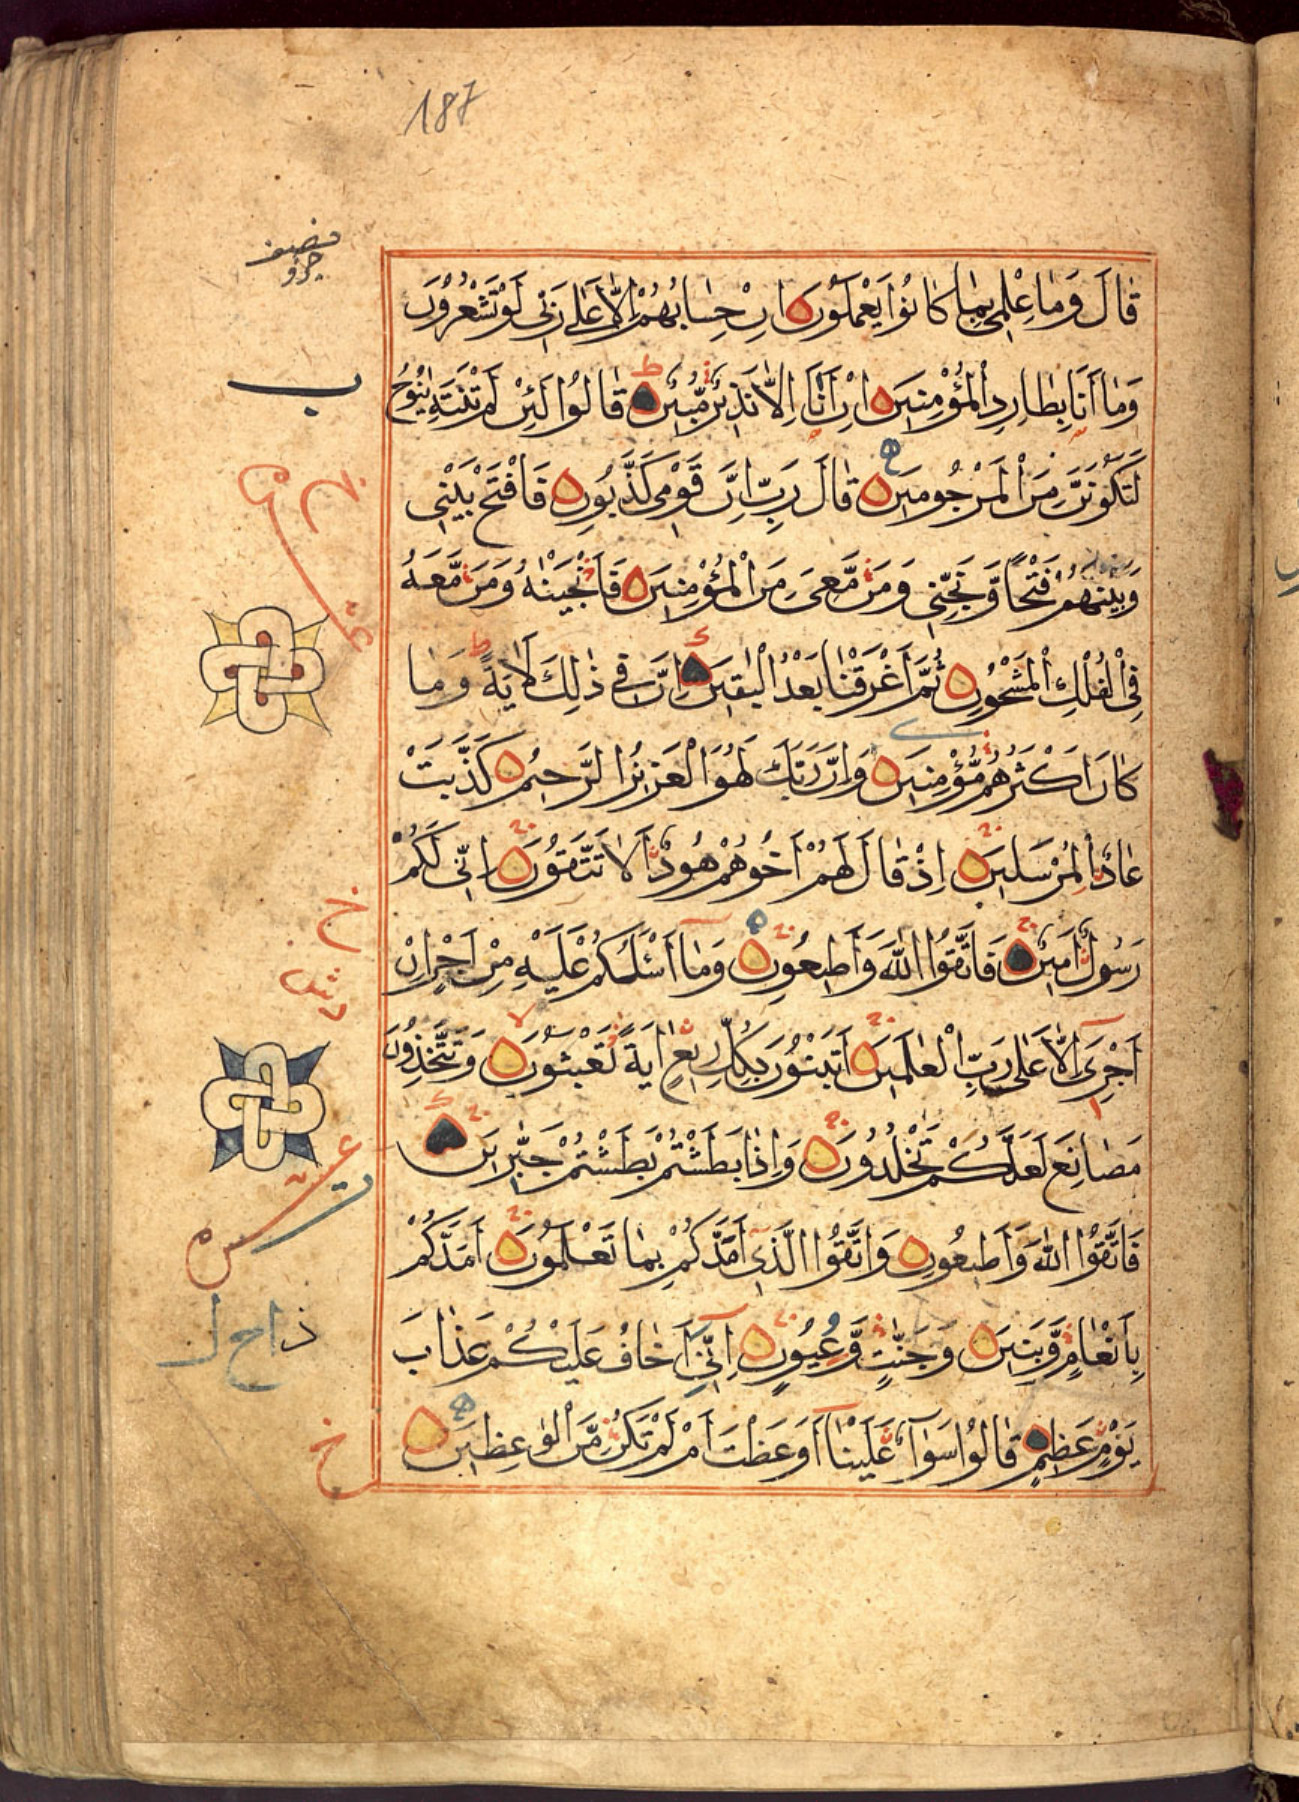 187
نصف
جزؤ
قٰالَ وَمٰا عِلْمِي بِمٰا كٰانُوا يَعْمَلُونَ اِنْ حِسٰابُهُمْ اِلّٰا عَلٰى رَبّٖي لَوْ تَشْعُرُونَ
وَمٰا اَنَا بِطٰارِدِ الْمُؤْمِنٖينَ اِنْ اَنَا اِلّٰا نَذٖيرٌ مُّبٖينٌ قٰالُوا لَئِنْ لَمْ تَنْتَهِ يٰنُوحُ
ب
لَتَكُونَنَّ مِنَ الْمَرْجُومٖينَ قٰالَ رَبِّ اِنَّ قَوْمٖي كَذَّبُونِ فَافْتَحْ بَيْنٖي
وَبَيْنَهُمْ فَتْحًا وَّنَجِّنٖي وَمَنْ مَّعِيَ مِنَ الْمُؤْمِنٖينَ فَاَنْجَيْنٰهُ وَمَنْ مَّعَهُ
فِي الْفُلْكِ الْمَشْحُونِ ثُمَّ اَغْرَقْنٰا بَعْدُ الْبٰقٖينَ اِنَّ فٖي ذٰلِكَ لَاٰيَةً وَمٰا
كٰانَ اَكْثَرُهُمْ مُّؤْمِنٖينَ وَاِنَّ رَبَّكَ لَهُوَ الْعَزٖيزُ الرَّحٖيمُ كَذَّبَتْ
عٰادٌ الْمُرْسَلٖينَ اِذْ قٰالَ لَهُمْ اَخُوهُمْ هُودٌ اَلٰا تَتَّقُونَ اِنّٖي لَكُمْ
رَسُولٌ اَمٖينٌ فَاتَّقُوا اللّٰهَ وَاَطٖيعُونِ وَمٰا اَسْئَلُكُمْ عَلَيْهِ مِنْ اَجْرٍ اِنْ
اَجْرِيَ اِلّٰا عَلٰى رَبِّ الْعٰلَمٖينَ اَتَبْنُونَ بِكُلِّ رٖيعٍ اٰيَةً تَعْبَثُونَ وَتَتَّخِذُونَ
مَصٰانِعَ لَعَلَّكُمْ تَخْلُدُونَ وَاِذٰا بَطَشْتُمْ بَطَشْتُمْ جَبّٰرٖينَ
فَاتَّقُوا اللّٰهَ وَاَطٖيعُونِ وَاتَّقُوا الَّذٖي اَمَدَّكُمْ بِمٰا تَعْلَمُونَ اَمَدَّكُمْ
بِاَنْعٰامٍ وَّبَنٖينَ وَجَنّٰتٍ وَّعُيُونٍ اِنّٖي اَخٰافُ عَلَيْكُمْ عَذٰابَ
يَوْمٍ عَظٖيمٍ قٰالُوا سَوٰاءٌ عَلَيْنٰا اَوَعَظْتَ اَمْ لَمْ تَكُنْ مِّنَ الْوٰعِظٖينَ